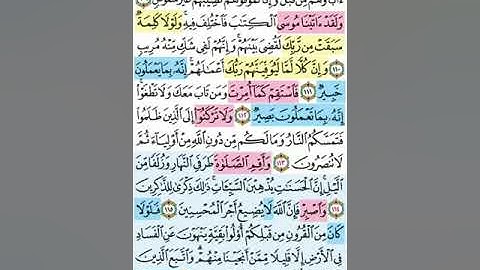 مِّن قَبْلُ وَإِنَّا لَمُوَفُّوهُمْ نَصِيبَهُمْ غَيْرَ
وَلَقَدْ ءَاتَيْنَا مُوسَى ٱلْكِتَٰبَ فَٱخْتُلِفَ فِيهِ ۚ وَلَوْلَا كَلِمَةٌ
سَبَقَتْ مِن رَّبِّكَ لَقُضِىَ بَيْنَهُمْ ۚ وَإِنَّهُمْ لَفِى شَكٍّ مِّنْهُ مُرِيبٍ
١١٠ وَإِنَّ كُلًّا لَّمَّا لَيُوَفِّيَنَّهُمْ رَبُّكَ أَعْمَٰلَهُمْ ۚ إِنَّهُۥ بِمَا يَعْمَلُونَ
خَبِيرٌ ١١١ فَٱسْتَقِمْ كَمَآ أُمِرْتَ وَمَن تَابَ مَعَكَ وَلَا تَطْغَوْا۟ ۚ
إِنَّهُۥ بِمَا تَعْمَلُونَ بَصِيرٌ ١١٢ وَلَا تَرْكَنُوٓا۟ إِلَى ٱلَّذِينَ ظَلَمُوا۟
فَتَمَسَّكُمُ ٱلنَّارُ وَمَا لَكُم مِّن دُونِ ٱللَّهِ مِنْ أَوْلِيَآءَ ثُمَّ
لَا تُنصَرُونَ ١١٣ وَأَقِمِ ٱلصَّلَوٰةَ طَرَفَىِ ٱلنَّهَارِ وَزُلَفًا مِّنَ
ٱلَّيْلِ ۚ إِنَّ ٱلْحَسَنَٰتِ يُذْهِبْنَ ٱلسَّيِّـَٔاتِ ۚ ذَٰلِكَ ذِكْرَىٰ لِلذَّٰكِرِينَ
١١٤ وَٱصْبِرْ فَإِنَّ ٱللَّهَ لَا يُضِيعُ أَجْرَ ٱلْمُحْسِنِينَ ١١٥ فَلَوْلَا
كَانَ مِنَ ٱلْقُرُونِ مِن قَبْلِكُمْ أُو۟لُوا۟ بَقِيَّةٍ يَنْهَوْنَ عَنِ ٱلْفَسَادِ
فِى ٱلْأَرْضِ إِلَّا قَلِيلًا مِّمَّنْ أَنجَيْنَا مِنْهُمْ ۗ وَٱتَّبَعَ ٱلَّذِينَ